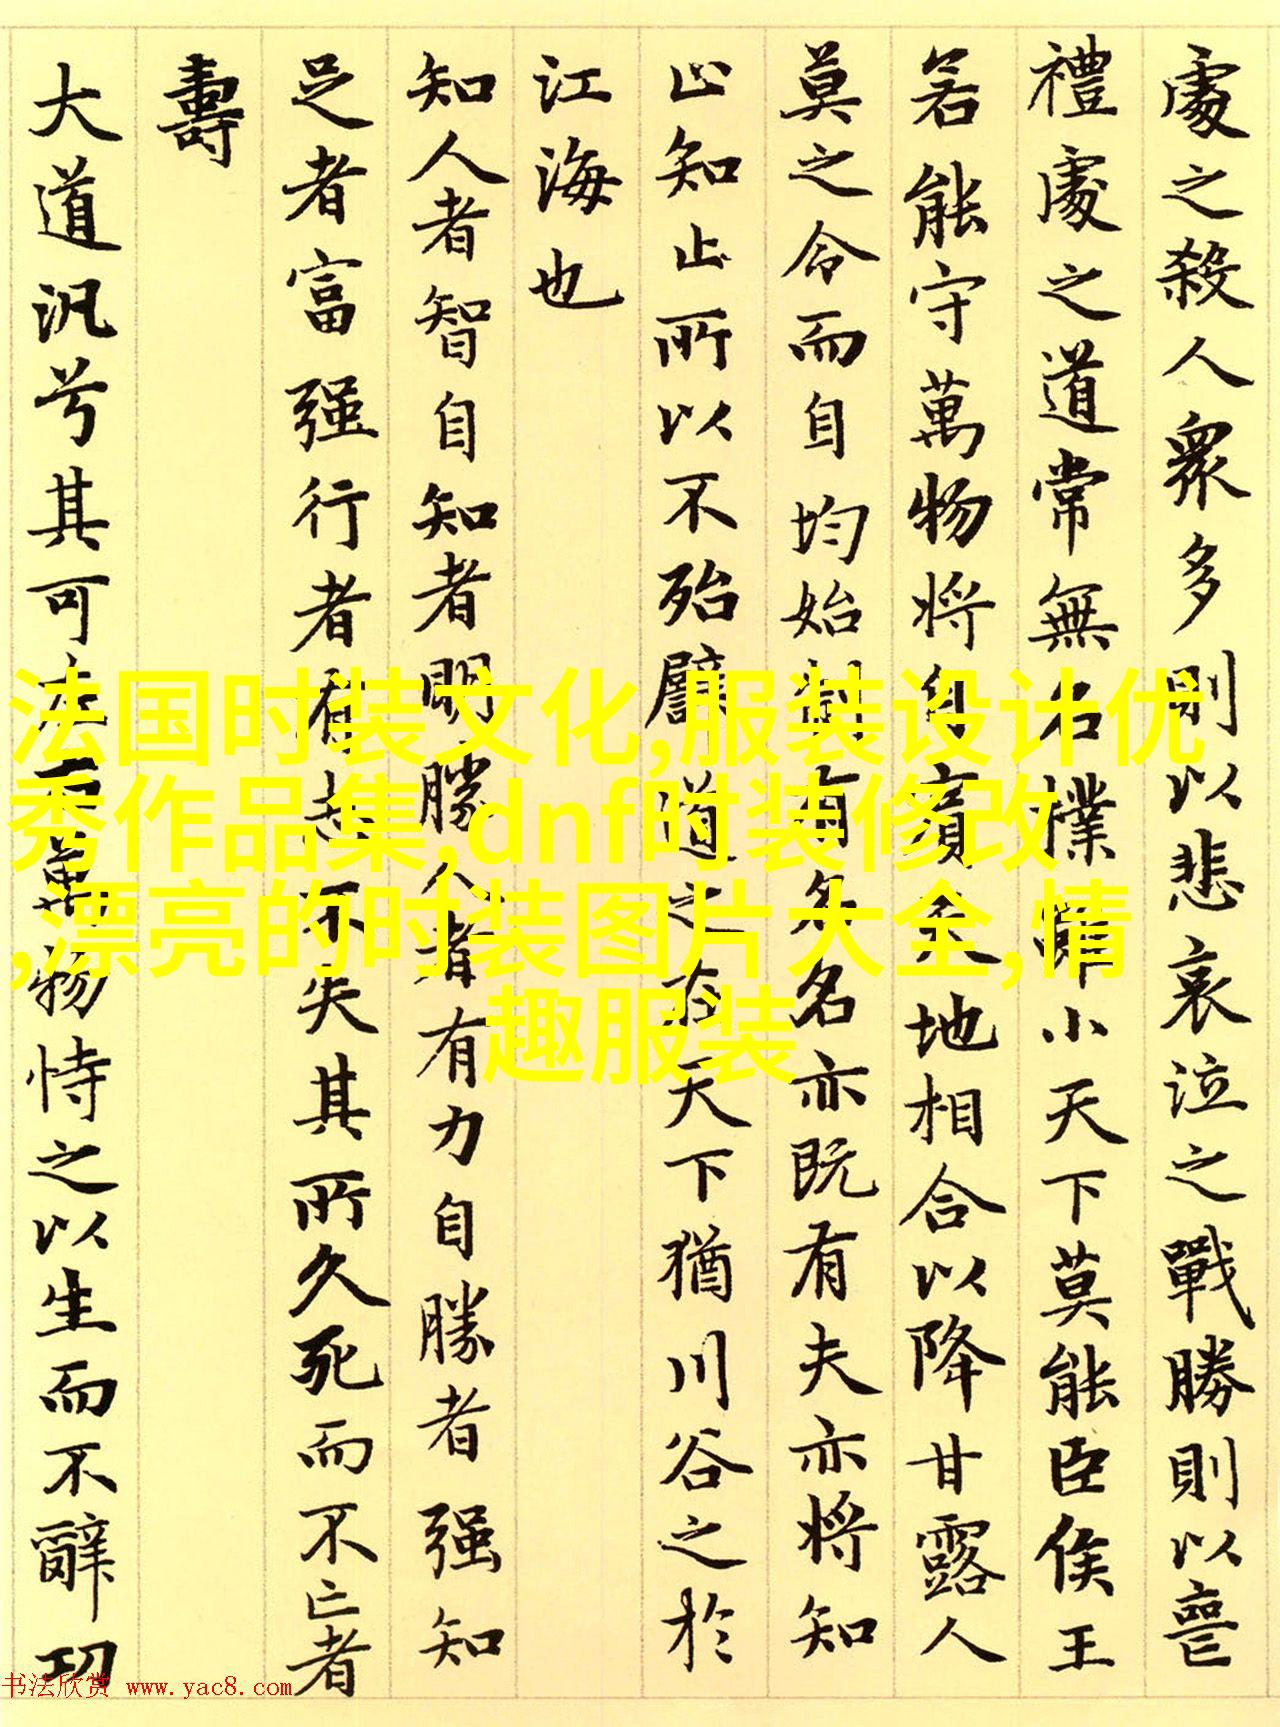 處之殺人眾多則以悲哀泣之戰勝則以喪
禮處之道常無名樸雖小天下莫能臣侯王
若能守萬物將自賓天地相合以降甘露人
莫之令而自均始制有名名亦既有夫亦將知
止知止所以不殆譬道之在天下猶川谷之於
江海也
知人者智自知者明勝人者有力自勝者强知
足者富强行者有志不失其所久死而不亡者
壽
大道汎兮其可左右萬物恃之以生而不辭功
法国时装文化,服装设计优
秀作品集,dnf时装修改
,漂亮的时装图片大全,情
趣服装
书法欣赏 www.yac8.com